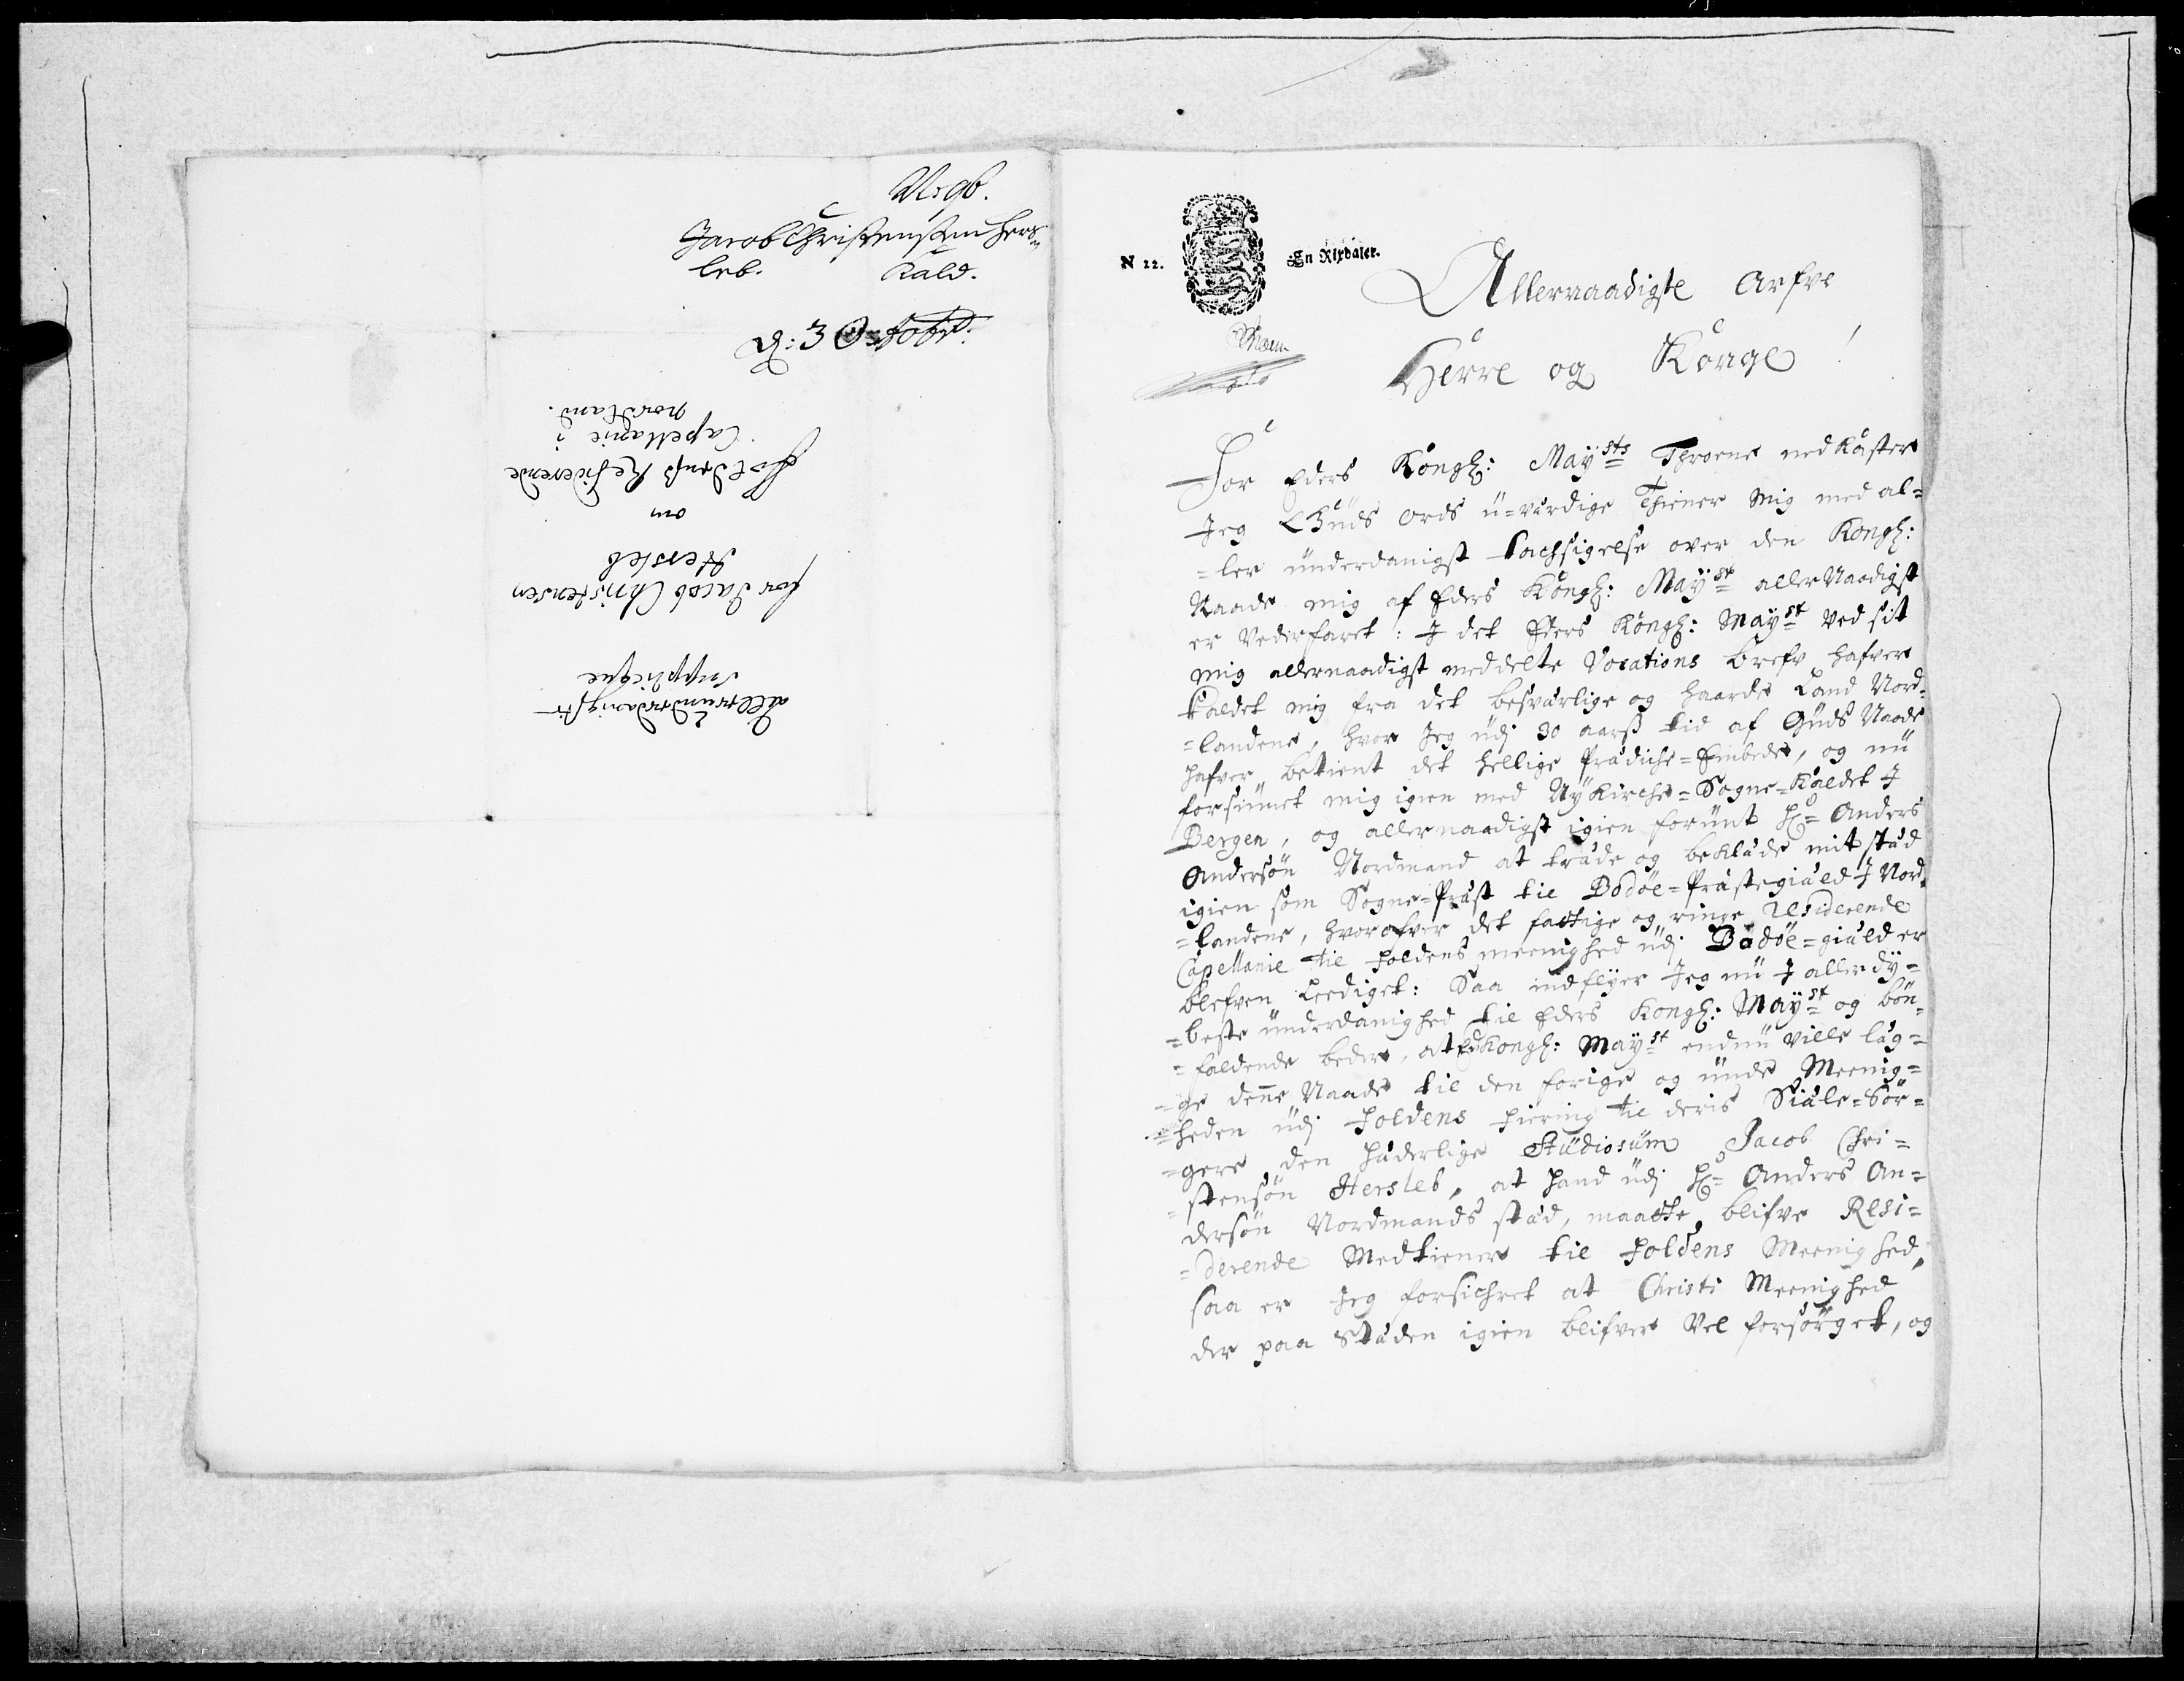 Jacob Christensen Hers-
leb. Kald.
d: 3 Octobr.
Allerunderdanigste
Supplicque
for Jacob Christensen
Hersleb
om
Foldens Residerende
Capellanie i
Nordland.
N 22. En Rixdaler.
Allernaadigste Arfve
Herre og Konge!
For Eders Kongl: Maysts Throene nedkaster
Jeg Guds Ords u-værdige Thiener mig med al=
=ler underdanigst tachsigelse over den Kongl:
Naade mig af Eders Kongl: Mayst allerNaadigst
er Vederfaret: I det Eders Kongl: Mayst Ved sit
mig allernaadigst meddelte Vocations bref hafver
kaldet mig fra det besværlige og haarde Land Nord=
=landene, hvor Jeg udj 30 aars tid af Guds Naade
hafver betient det hellige Prædiche=Embede, og nu
forsiunet mig igien med NyKirche=Sogne=Kaldet I
Bergen, og allernaadigst igien forunt Hr= Anders
Andersøn Nordmand at træde og beklæde mit stæd
igien som Sogne=Præst til Bodøe=Præstegiæld I Nord=
=landene, hvorofver det fattige og ringe Residerende
Capellanie til Foldens meenighed udj Bodøe=giæld er
blefven Leediget: Saa indflyer Jeg nu I allerdy=
=beste underdanighed til Eders Kongl: Mayst og bøn=
=faldende beder, at Ed Kongl: Mayst endnu ville læg=
=ge denne Naade til den forige og unde Meenig=
=heden udj Foldens fiering til deris Siæle=Sør=
=gere den hæderlige Studiosum Jacob Chri=
=stensøn Hersleb, at hand udj Hr= Anders An=
dersøn Nordmands stæd, maatte blifve Resi=
=derende Medtiener til Foldens Meenighed,
saa er Jeg forsichret at Christi Meenighed
der paa Stæden igien blifver Vel forsørget, og